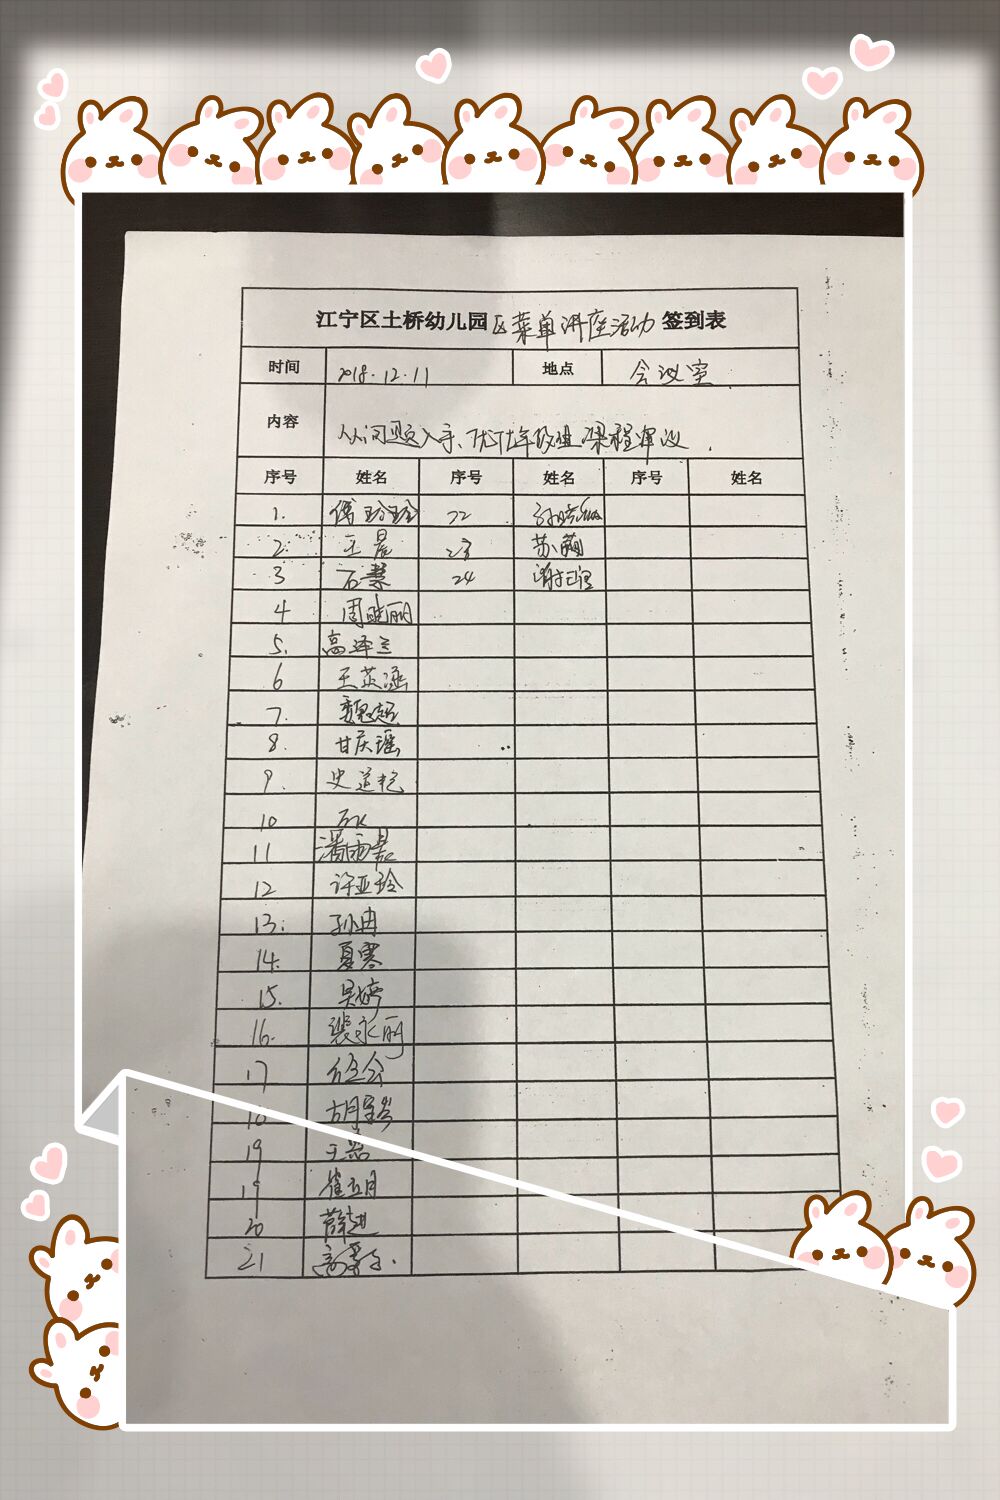 江宁区土桥幼儿园区菜单讲座活动签到表
时间 2018.12.11 地点 会议室
内容 从问题入手、优化年级组课程审议.
序号 姓名 序号 姓名 序号 姓名
1. 22
2. 王晨 23 苏萌
3 石慧 24
4 周晓丽
5. 高泽兰
6 王苡涵
7. 魏超
8. 甘庆瑶
9. 史道艳
10
11 潘雨晨
12 许亚玲
13. 孙冉
14. 夏寒
15. 吴婷
16. 裴永丽
17
18
19
19 崔五月
20 薛进
21